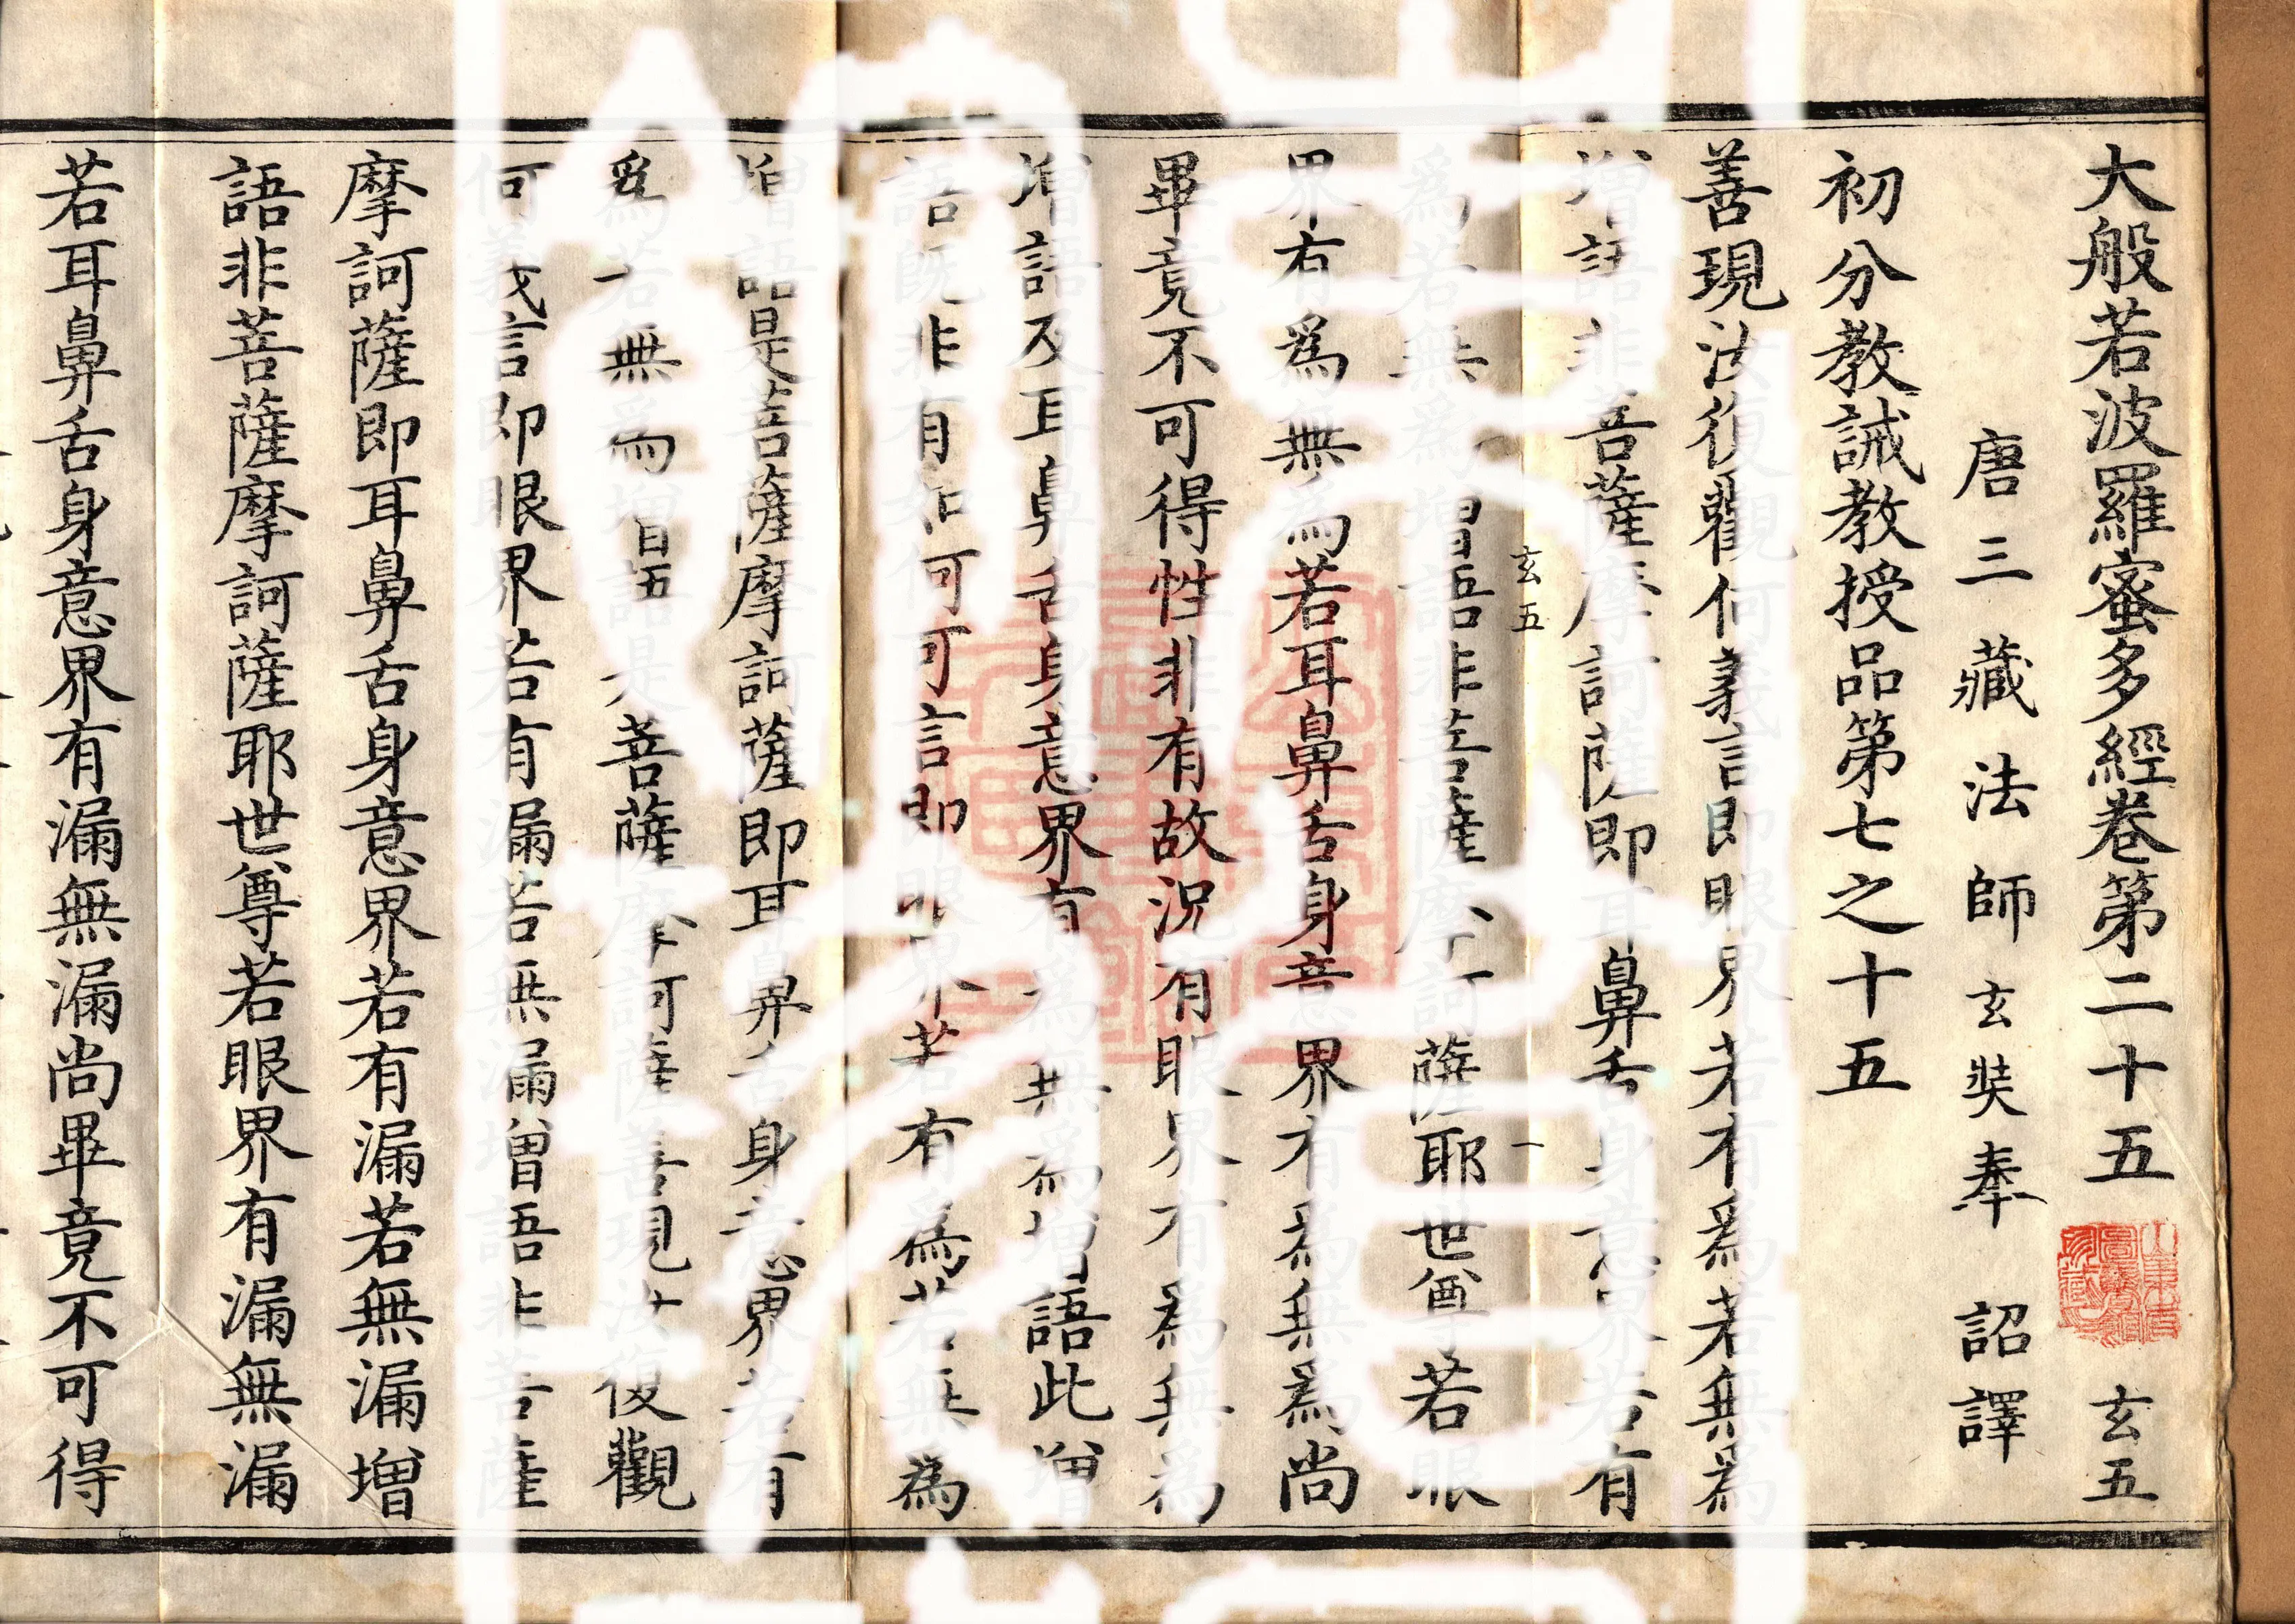 大般若波羅蜜多經卷第二十五 玄五
唐三藏法師玄奘奉 詔譯
初分教誡教授品第七之十五
善現汝復觀何義言即眼界若有為若無為
增語非菩薩摩訶薩即耳鼻舌身意界若有
玄五 一
為若無為增語非菩薩摩訶薩耶世尊若眼
界有為無為若耳鼻舌身意界有為無為尚
畢竟不可得性非有故況有眼界有為無為
增語及耳鼻舌身意界有為無為增語此增
語既非有如何可言即眼界若有為若無為
增語是菩薩摩訶薩即耳鼻舌身意界若有
為若無為增語是菩薩摩訶薩善現汝復觀
何義言即眼界若有漏若無漏增語非菩薩
摩訶薩即耳鼻舌身意界若有漏若無漏增
語非菩薩摩訶薩耶世尊若眼界有漏無漏
若耳鼻舌身意界有漏無漏尚畢竟不可得